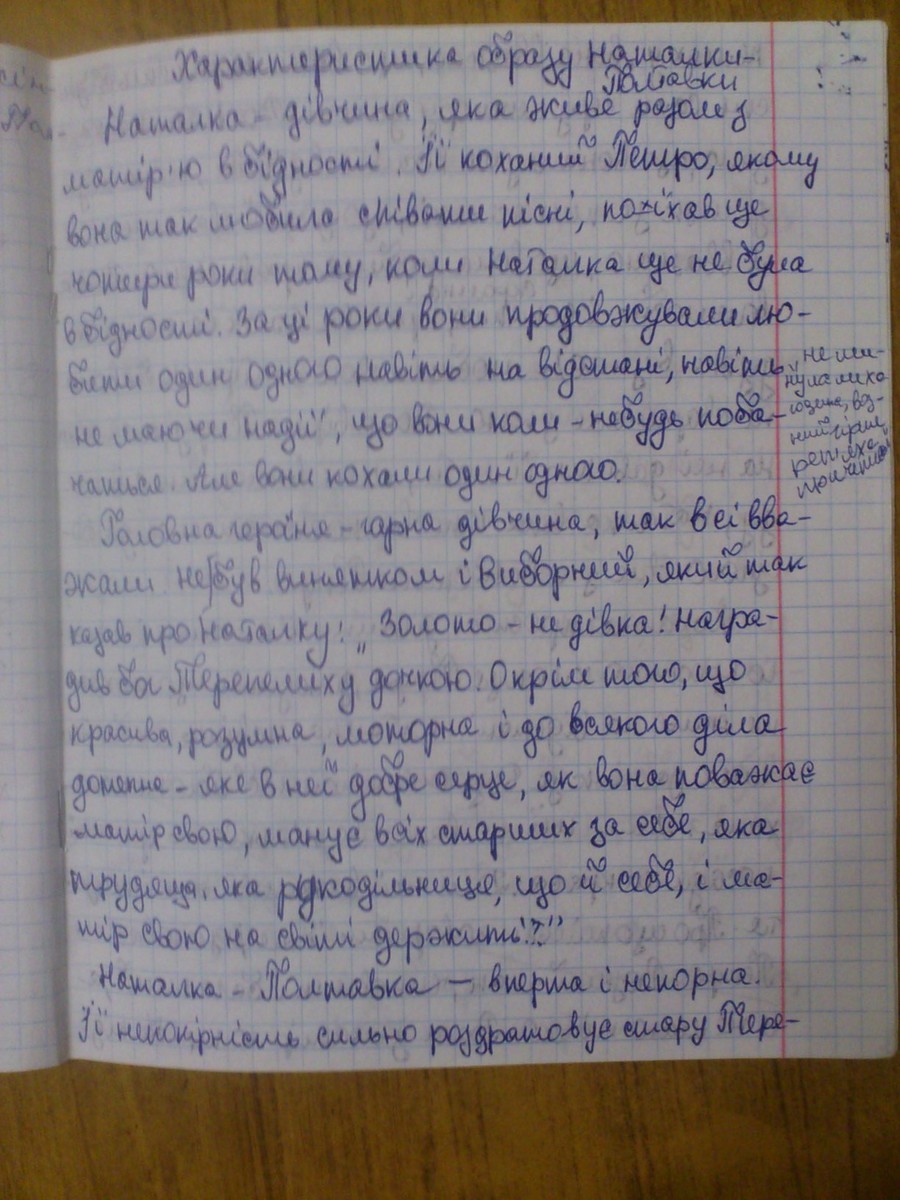 Характеристика образу Наталки-
Полтавки
Наталка - дівчина, яка живе разом з
матір'ю в бідності. Її коханий Петро, якому
вона так любила співати пісні, поїхав ще
чотири роки тому, коли Наталка ще не була
в бідності. За ці роки вони продовжували лю-
бити один одного навіть на відстані, навіть
не маючи надії, що вони коли-небудь поба-
чаться. Але вони кохали один одного.
Головна героїня - гарна дівчина, так всі вва-
жали не був винятком і Виборний, який так
казав про Наталку: „Золото - не дівка! Награ-
див бог Терпелиху дочкою. Окрім того, що
красива, розумна, моторна і до всякого діла
дотепна - яке в неї добре серце, як вона поважає
матір свою, шанує всіх старших за себе, яка
трудяща, яка рукодільниця, що й себе, і ма-
тір свою на світі держить!?"
Наталка - Полтавка — вперта і непокорна.
Її непокірність сильно роздратовує стару Тере-